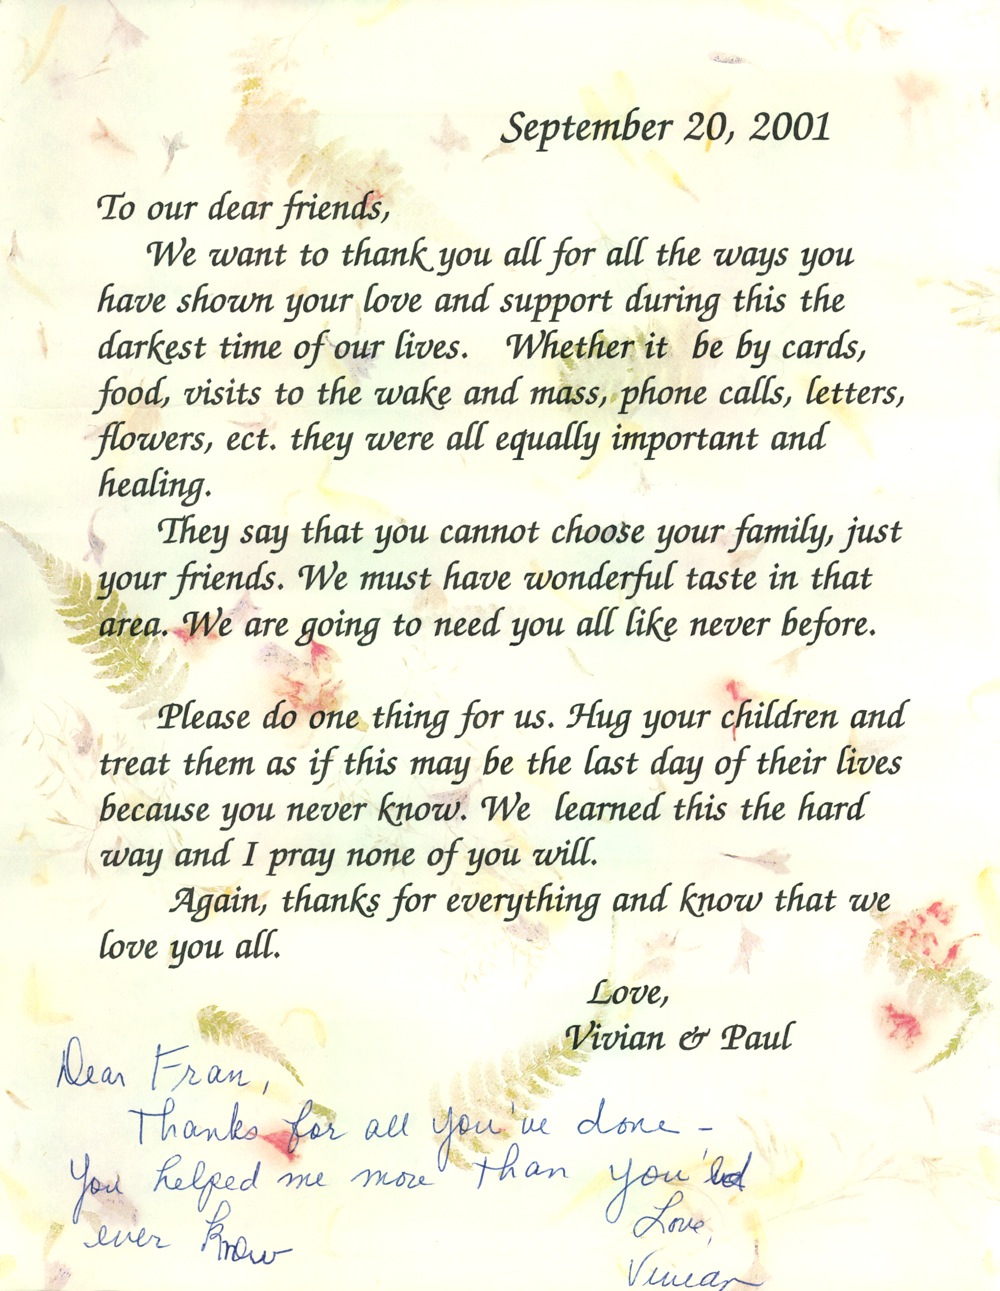 September 20, 2001
To our dear friends,
We want to thank you all for all the ways you
have shown your love and support during this the
darkest time of our lives. Whether it be by cards,
food, visits to the wake and mass, phone calls, letters,
flowers, ect. they were all equally important and
healing.
They say that you cannot choose your family, just
your friends. We must have wonderful taste in that
area. We are going to need you all like never before.
Please do one thing for us. Hug your children and
treat them as if this may be the last day of their lives
because you never know. We learned this the hard
way and I pray none of you will.
Again, thanks for everything and know that we
love you all.
Love,
Vivian & Paul
Dear Fran,
Thanks for all you've done -
You helped me more than you'll
ever know
Love,
Vivian